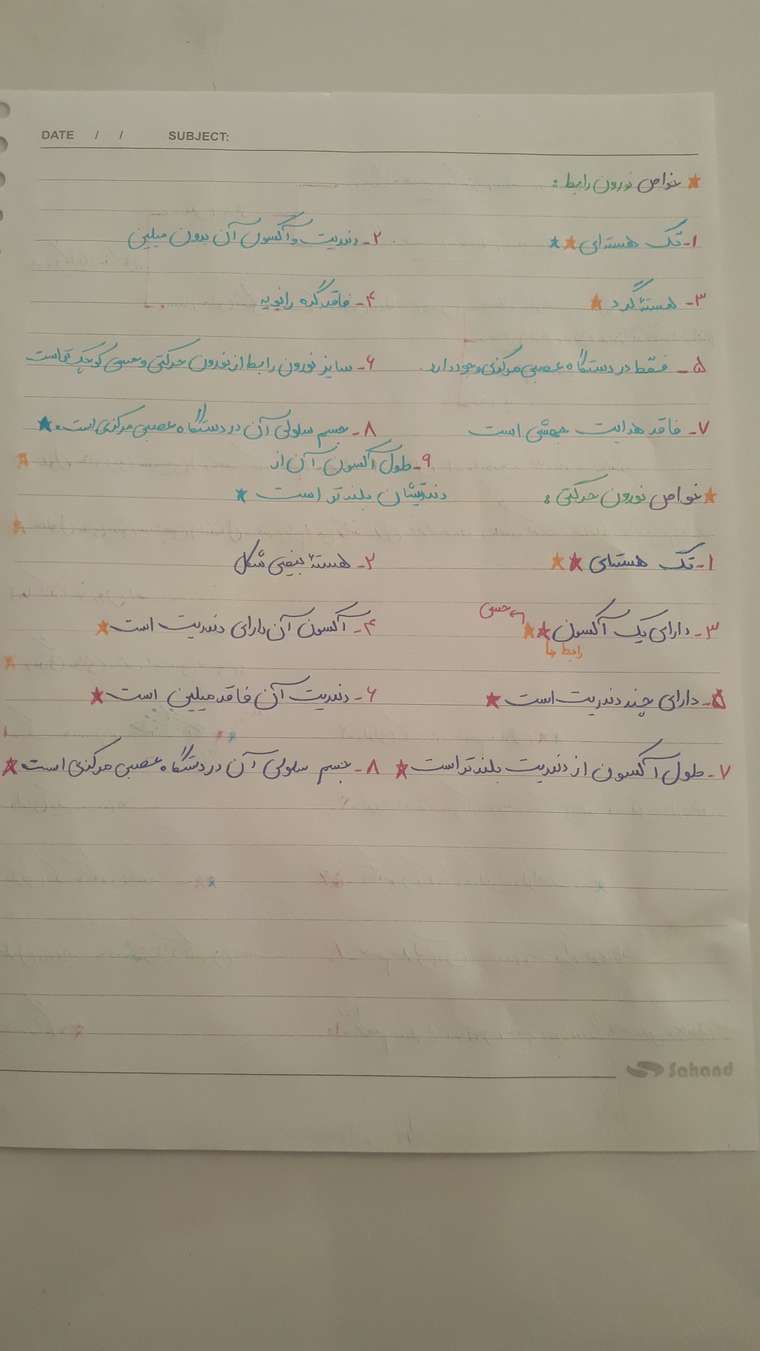 DATE / / SUBJECT:
★ خواص نورون رابط:
۱- تک هسته‌ای ★★ ۲- دندریت و آکسون آن بدون میلین
۳- هستهٔ گرد ★ ۴- فاقد گره رانویه
۵- فقط در دستگاه عصبی مرکزی وجود دارد. ۶- سایز نورون رابط از نورون حرکتی و حسی کوچک‌تر است
۷- فاقد هدایت جهشی است ۸- جسم سلولی آن در دستگاه عصبی مرکزی است. ★
۹- طول آکسون آن از
دندریتشان بلندتر است ★
★ خواص نورون حرکتی:
۱- تک هسته‌ای ★★ ۲- هستهٔ بیضی شکل
۳- دارای یک آکسون ★★ حسی رابط ۴- آکسون آن دارای دندریت است ★
۵- دارای چند دندریت است ★ ۶- دندریت آن فاقد میلین است ★
۷- طول آکسون از دندریت بلندتر است ★ ۸- جسم سلولی آن در دستگاه عصبی مرکزی است ★
Sahand